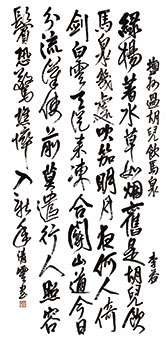 過胡兒飲馬泉 李益
綠楊著水草如烟舊是胡兒飲
馬泉幾處吹笳明月夜何人倚
劍白雲天從来凍合關山道今日
分流漢使前莫遣行人照容
鬢恐驚憔悴入新年